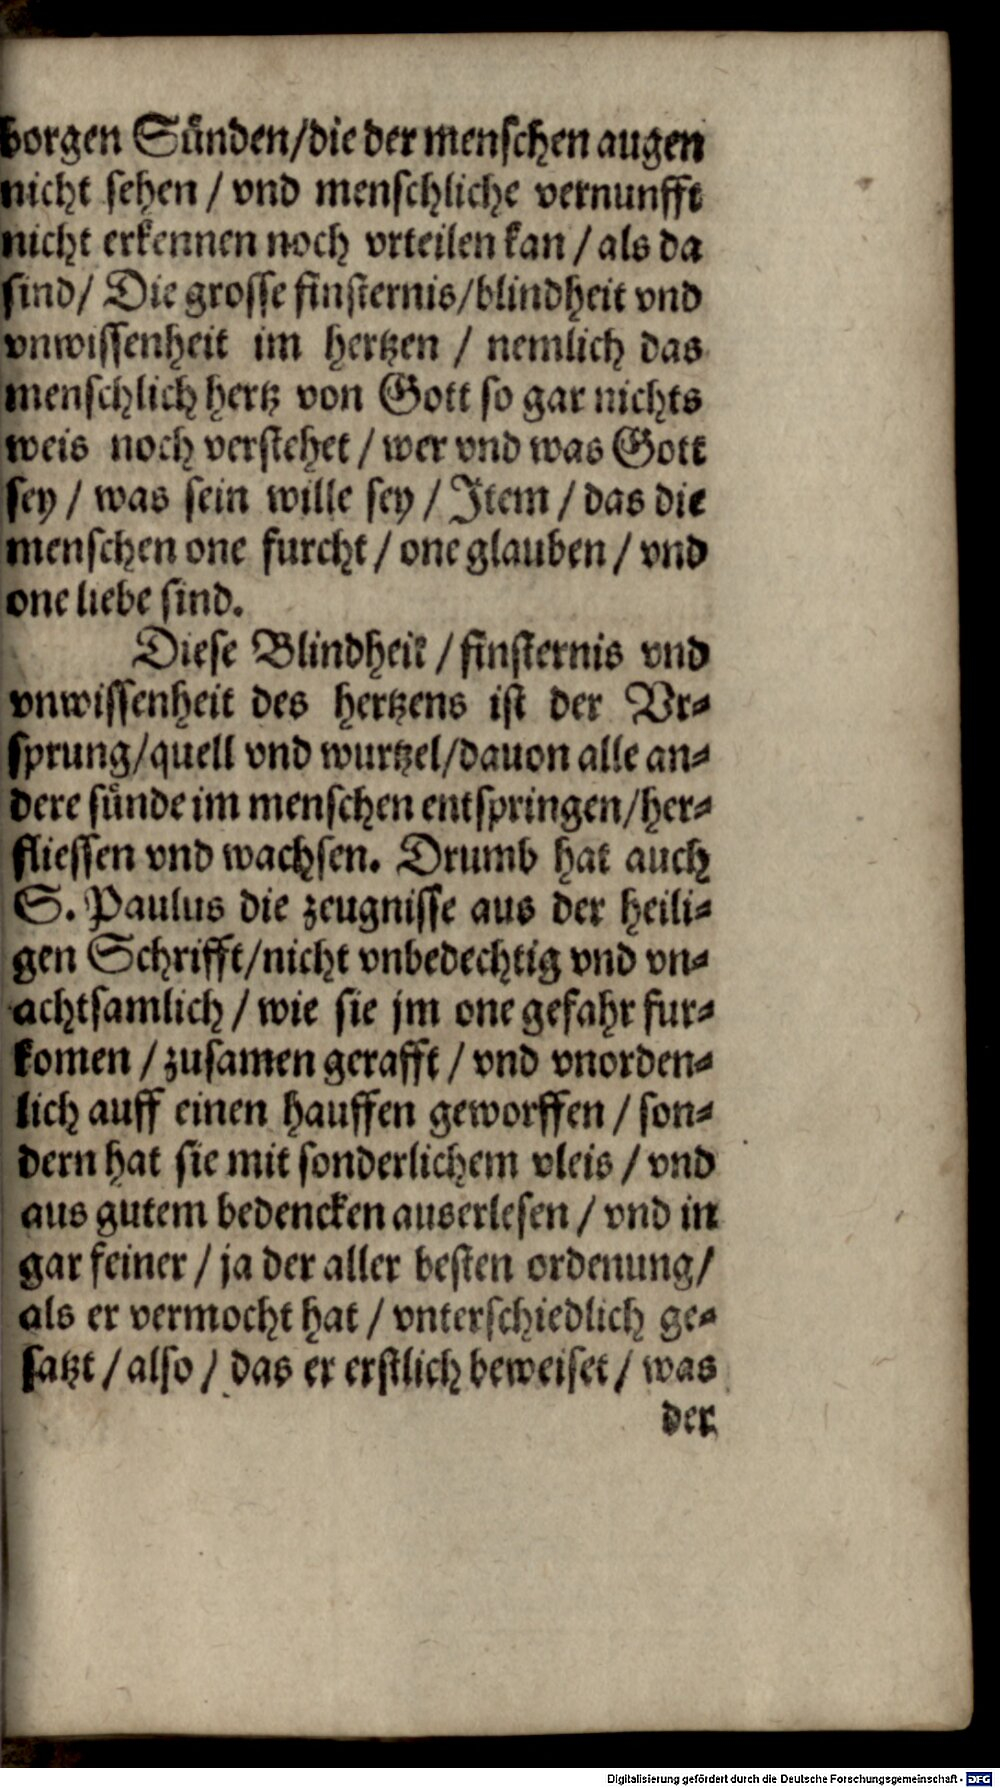 borgen Sünden/die der menschen augen
nicht sehen / vnd menschliche vernunfft
nicht erkennen noch vrteilen kan / als da
sind/ Die grosse finsternis/blindheit vnd
vnwissenheit im hertzen / nemlich das
menschlich hertz von Gott so gar nichts
weis noch verstehet / wer vnd was Gott
sey / was sein wille sey / Item / das die
menschen one furcht / one glauben / vnd
one liebe sind.
Diese Blindheit / finsternis vnd
vnwissenheit des hertzens ist der Vr-
sprung/quell vnd wurtzel/dauon alle an-
dere sünde im menschen entspringen/her-
fliessen vnd wachsen. Drumb hat auch
S. Paulus die zeugnisse aus der heili-
gen Schrifft/nicht vnbedechtig vnd vn-
achtsamlich / wie sie jm one gefahr fur-
komen / zusamen gerafft / vnd vnorden-
lich auff einen hauffen geworffen / son-
dern hat sie mit sonderlichem vleis / vnd
aus gutem bedencken auserlesen / vnd in
gar feiner / ja der aller besten ordenung/
als er vermocht hat / vnterschiedlich ge-
satzt / also / das er erstlich beweiset / was
der
Digitalisierung gefördert durch die Deutsche Forschungsgemeinschaft - DFG